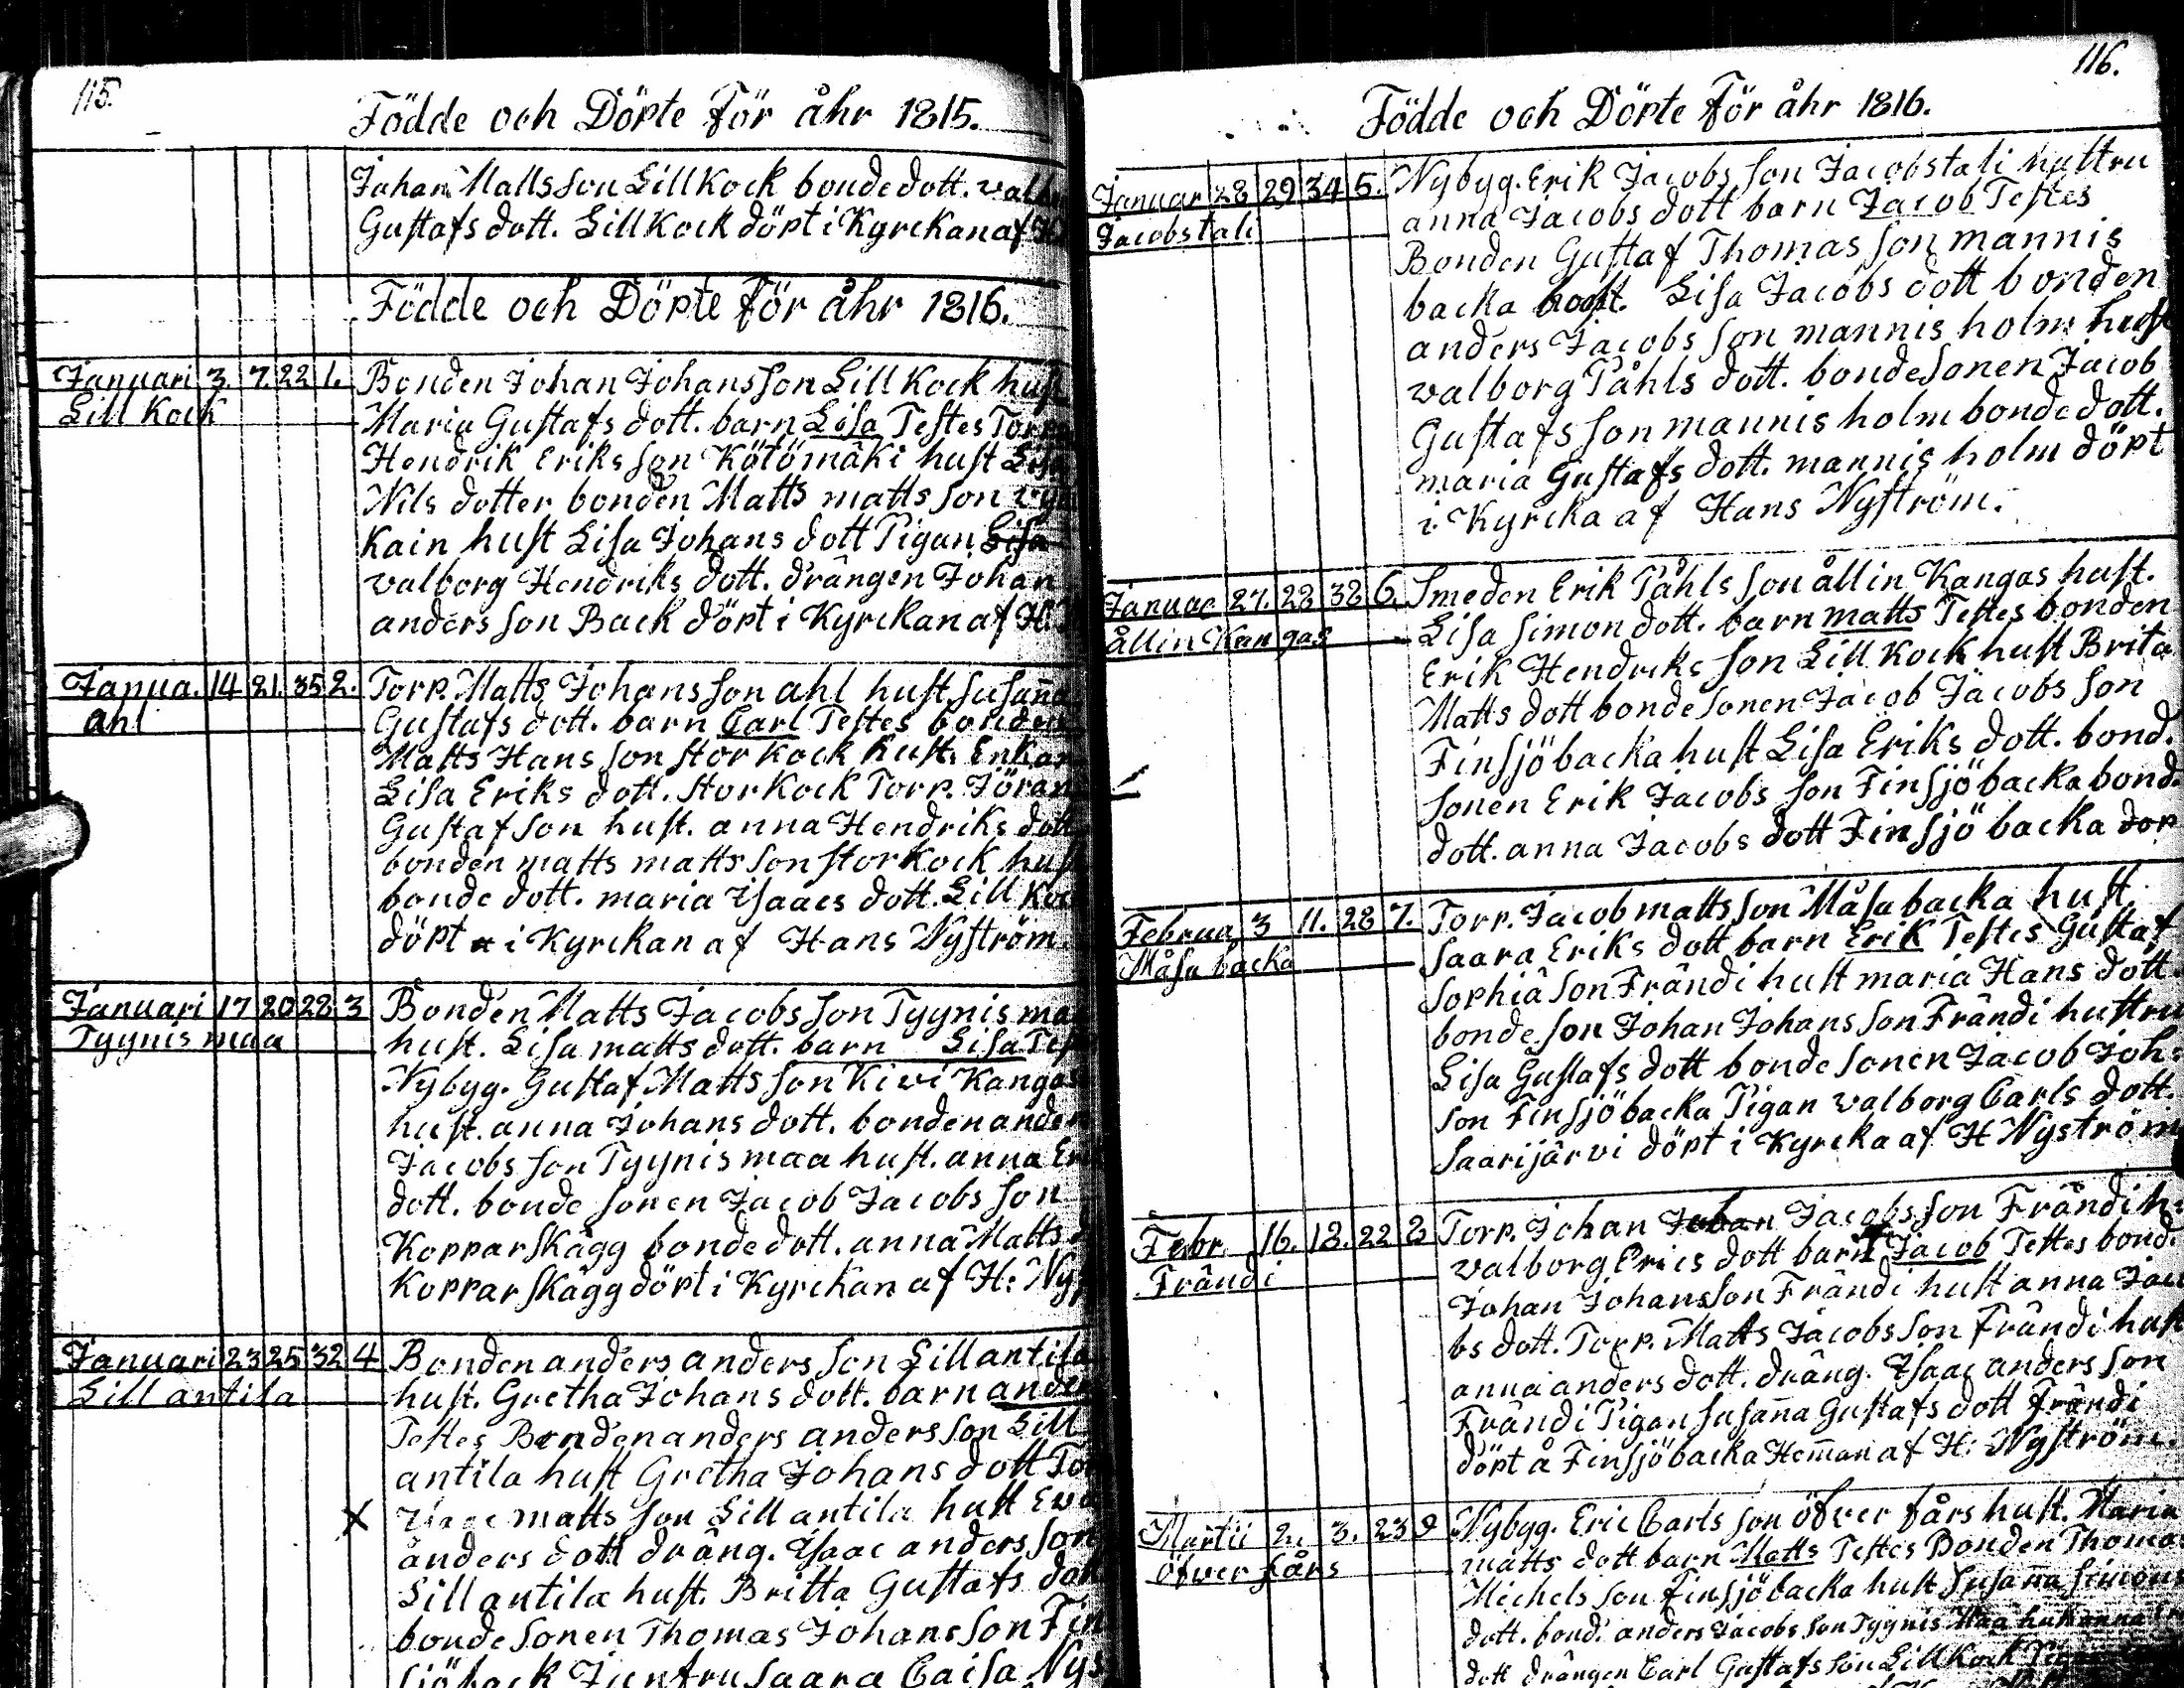 115.
Födde och Döpte För åhr 1815.
Johan Matts son Lill Kock bonde dott.
Gustafs dott. Lill Kock döpt i Kyrckan af
Födde och Döpte För åhr 1816.
Januari 3. 7. 22 1. Bonden Johan Johans son Lill Kock hust
Lill Kock Maria Gustafs dott. barn Lisa Testes
Hendrik Eriks son Kötömäki hust
Nils dotter bonden Matts matts son
Kain hust Lisa Johans dott Pigan Lisa
valborg Hendriks dott. drängen Johan
anders son Back döpt i Kyrckan af
Janua. 14 21. 35 2. Torp. Matts Johans son ahl hust Susanna
ahl Gustafs dott. barn Carl Testes bonden
Matts Hans son Storkock hust. Enkan
Lisa Eriks dott. Storkock Torp. Jöran
Gustafson hust. anna Hendriks dott
bonden matts matts son Storkock hust
bonde dott. maria Isaacs dott. Lill
döpt i Kyrckan af Hans Nyström.
Januari 17 20 28 3 Bonden Matts Jacobs son Tyynis maa
Tyynis maa hust. Lisa matts dott. barn Lisa
Nybyg. Gustaf Matts son Kivi Kangas
hust. anna Johans dott. bonden
Jacobs son Tyynis maa hust. anna
dott. bonde sonen Jacob Jacobs son
Koppar Skägg bonde dott. anna Matts
Koppar Skägg döpt i Kyrckan af H:
Januari 23 25 32 4 Bonden anders anders son Lill antila
Lill antila hust. Gretha Johans dott. barn
Testes Bonden anders anders son Lill
antila hust Gretha Johans dott
x matts son Lill antila hust
anders dott dräng. Isaac anders son
Lill antila hust. Britta Gustafs dott
bonde sonen Thomas Johans son
Jungfru Saara Caisa
116.
Födde och Döpte För åhr 1816.
Januar 28 29 34 5. Nybyg. Erik Jacobs son Jacobstali hustru
Jacobstali anna Jacobs dott barn Jacob Testes
Bonden Gustaf Thomas son mannis
backa hust. Lisa Jacobs dott bonden
anders Jacobs son mannis holm hust
valborg Påhls dott. bonde sonen Jacob
Gustafs son mannis holm bonde dott.
maria Gustafs dott. mannis holm döpt
i Kyrcka af Hans Nyström.
Januar 27. 28 38 6. Smeden Erik Påhls son ållin Kangas hust.
ållin Kangas Lisa Simon dott. barn matts Testes bonden
Erik Hendriks son Lill Kock hust Brita
Matts dott bonde sonen Jacob Jacobs son
Finsjöbacka hust Lisa Eriks dott. bond.
sonen Erik Jacobs son Finsjöbacka bond
dott. anna Jacobs dott Finsjö backa döp
Februa 3 11. 28 7. Torp. Jacob matts son Måsa backa hust
Måsa backa Saara Eriks dott barn Erik Testes Gustaf
Sophia son Frändi hust maria Hans dott
bonde son Johan Johans son Frändi hustru
Lisa Gustafs dott bonde sonen Jacob Joh:
son Finsjöbacka Pigan valborg Carls dott.
Saarijärvi döpt i Kyrcka af H Nyström
Febr. 16. 18. 22 8 Torp. Johan Johan Jacobs son Frändi h:
Frändi valborg Erics dott barn Jacob Testes bond.
Johan Johans son Frändi hust anna Jaco
bs dott. Torp. Matts Jacobs son Frändi hust
anna anders dott. dräng. Isaac anders son
Frändi Pigan Susanna Gustafs dott Frändi
döpt å Finsjöbacka Hemman af H: Nyström.
Martii 2. 3. 23 9 Nybyg. Eric Carls son öfver fårs hust. Maria
öfver fårs matts dott barn Matts Testes Bonden Thomas
Michels son Finsjöbacka hust Susanna Simons
dott. bond. anders Jacobs son Tyynis maa hust anna
dott drängen Carl Gustafs son Lill Kock